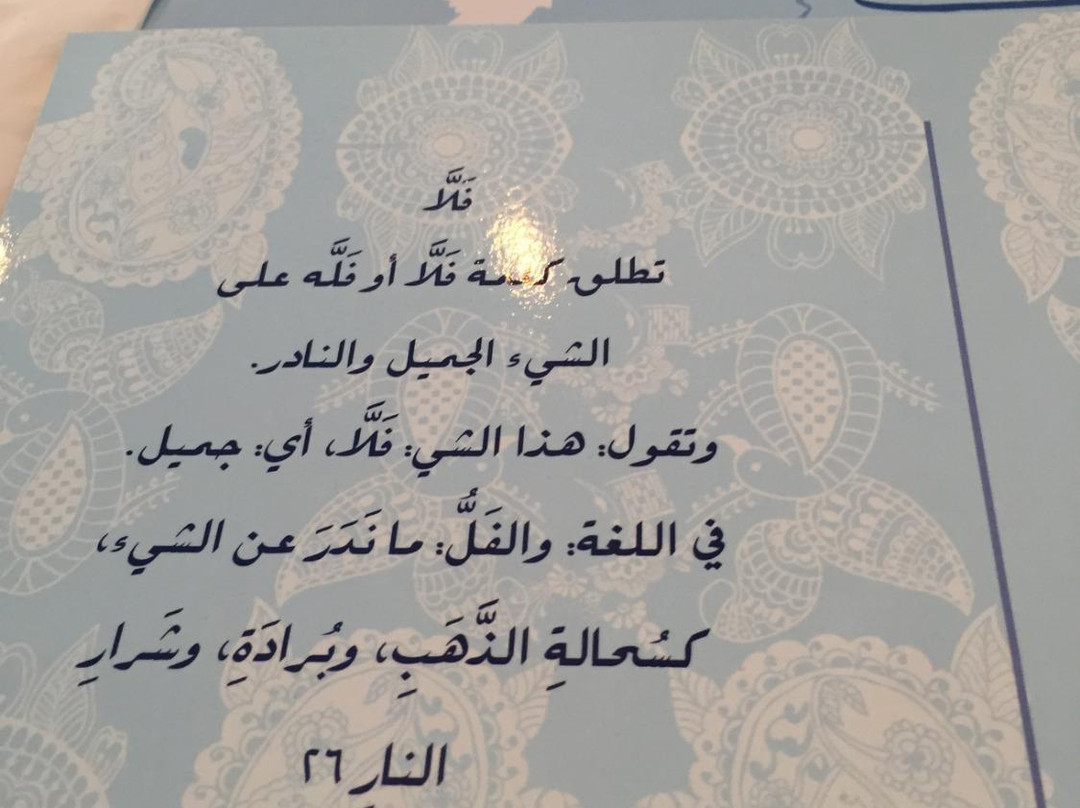 فَلَّا
تطلق كلمة فَلَّا أو فَلَّه على
الشيء الجميل والنادر.
وتقول: هذا الشي: فَلَّا، أي: جميل.
في اللغة: والفَلُّ: ما نَدَرَ عن الشيء،
كسُحالةِ الذَّهَبِ، وبُرادَةِ، وشَرارِ
النارِ ٢٦